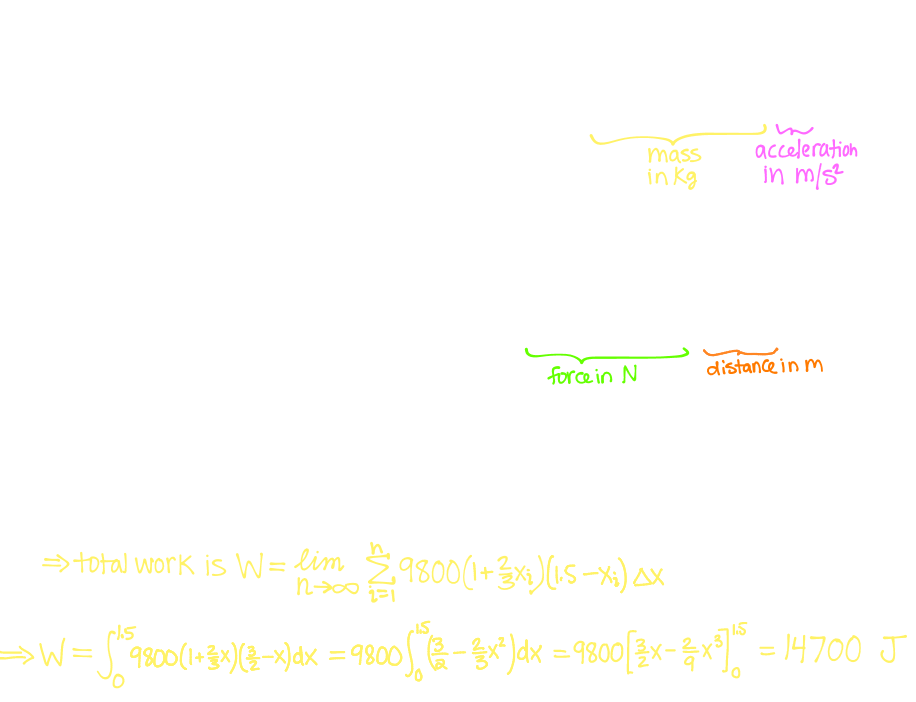 mass acceleration
in Kg in m/s²
force in N distance in m
⇒ total work is W = lim n→∞ Σ i=1 n 9800(1+2/3xᵢ)(1.5-xᵢ)Δx
⇒ W = ∫₀^1.5 9800(1+2/3x)(3/2-x)dx = 9800∫₀^1.5 (3/2-2/3x²)dx = 9800[3/2x-2/9x³]₀^1.5 = 14700 J